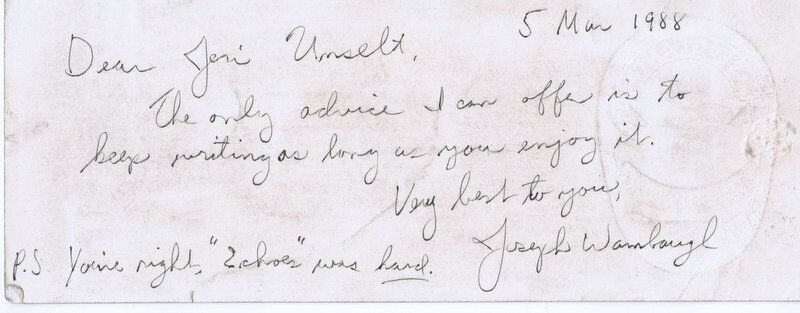 5 Mar 1988
Dear Jeri Unselt,
The only advice I can offer is to
keep writing as long as you enjoy it.
Very best to you,
Joseph Wambaugh
P.S You're right, "Echoes" was hard.